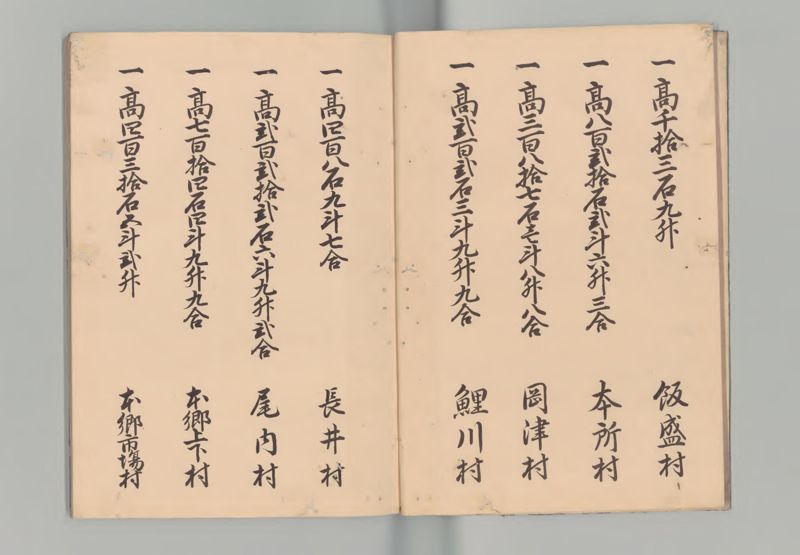 一高千拾三石九升 飯盛村
一高八百弐拾石弐斗六升三合 本所村
一高三百八拾七石壱斗八升八合 岡津村
一高弐百弐石三斗九升九合 鯉川村
一高四百八石九斗七合 長井村
一高弐百弐拾弐石六斗九升弐合 尾内村
一高七百拾四石四斗九升九合 本郷上下村
一高四百三拾石五斗弐升 本郷市場村